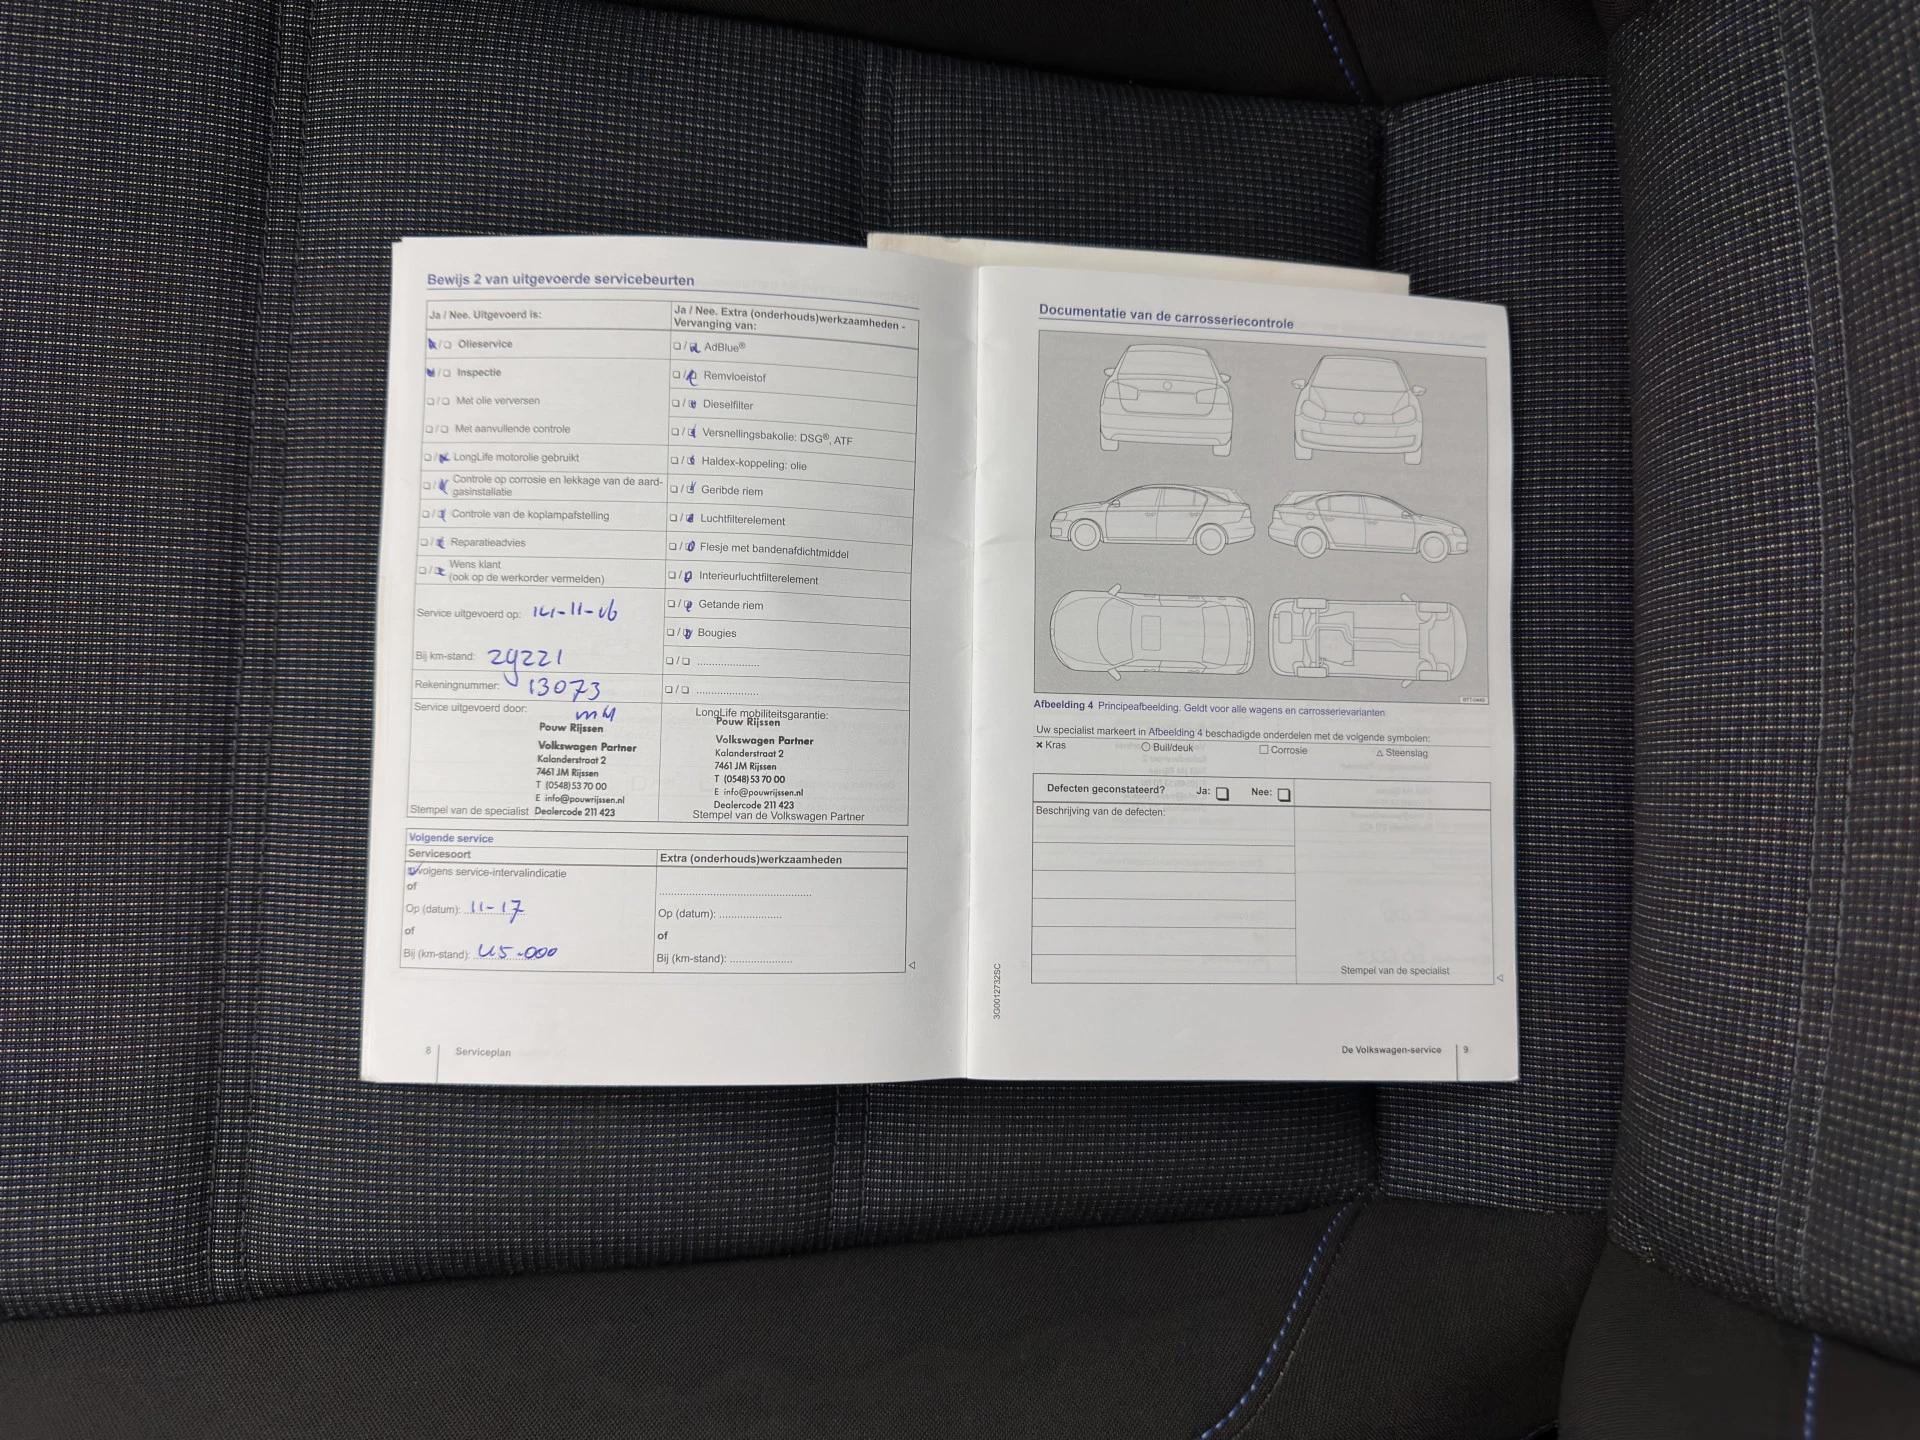 Bewijs 2 van uitgevoerde servicebeurten
Ja / Nee. Uitgevoerd is:
❏/❏ Olieservice
❏/❏ Inspectie
❏/❏ Met olie verversen
❏/❏ Met aanvullende controle
❏/❏ LongLife motorolie gebruikt
❏/❏ Controle op corrosie en lekkage van de aard-
gasinstallatie
❏/❏ Controle van de koplampafstelling
❏/❏ Reparatieadvies
❏/❏ Wens klant
(ook op de werkorder vermelden)
Service uitgevoerd op: 14-11-16
Bij km-stand: 29221
Rekeningnummer: 13073
Service uitgevoerd door:
Pouw Rijssen
Volkswagen Partner
Kalanderstraat 2
7461 JM Rijssen
T (0548) 53 70 00
E info@pouwrijssen.nl
Stempel van de specialist Dealercode 211 423
Ja / Nee. Extra (onderhouds)werkzaamheden -
Vervanging van:
❏/❏ AdBlue®
❏/❏ Remvloeistof
❏/❏ Dieselfilter
❏/❏ Versnellingsbakolie: DSG®, ATF
❏/❏ Haldex-koppeling: olie
❏/❏ Geribde riem
❏/❏ Luchtfilterelement
❏/❏ Flesje met bandenafdichtmiddel
❏/❏ Interieurluchtfilterelement
❏/❏ Getande riem
❏/❏ Bougies
❏/❏ .....................
❏/❏ .....................
LongLife mobiliteitsgarantie:
Pouw Rijssen
Volkswagen Partner
Kalanderstraat 2
7461 JM Rijssen
T (0548) 53 70 00
E info@pouwrijssen.nl
Dealercode 211 423
Stempel van de Volkswagen Partner
Volgende service
Servicesoort
volgens service-intervalindicatie
of
Op (datum): 11-17
of
Bij (km-stand): 45.000
Extra (onderhouds)werkzaamheden
Op (datum): .....................
of
Bij (km-stand): .....................
8 Serviceplan
Documentatie van de carrosseriecontrole
Afbeelding 4 Principeafbeelding. Geldt voor alle wagens en carrosserievarianten
Uw specialist markeert in Afbeelding 4 beschadigde onderdelen met de volgende symbolen:
× Kras ○ Buil/deuk □ Corrosie △ Steenslag
Defecten geconstateerd? Ja: ❏ Nee: ❏
Beschrijving van de defecten:
Stempel van de specialist
3G0012732SC
De Volkswagen-service 9